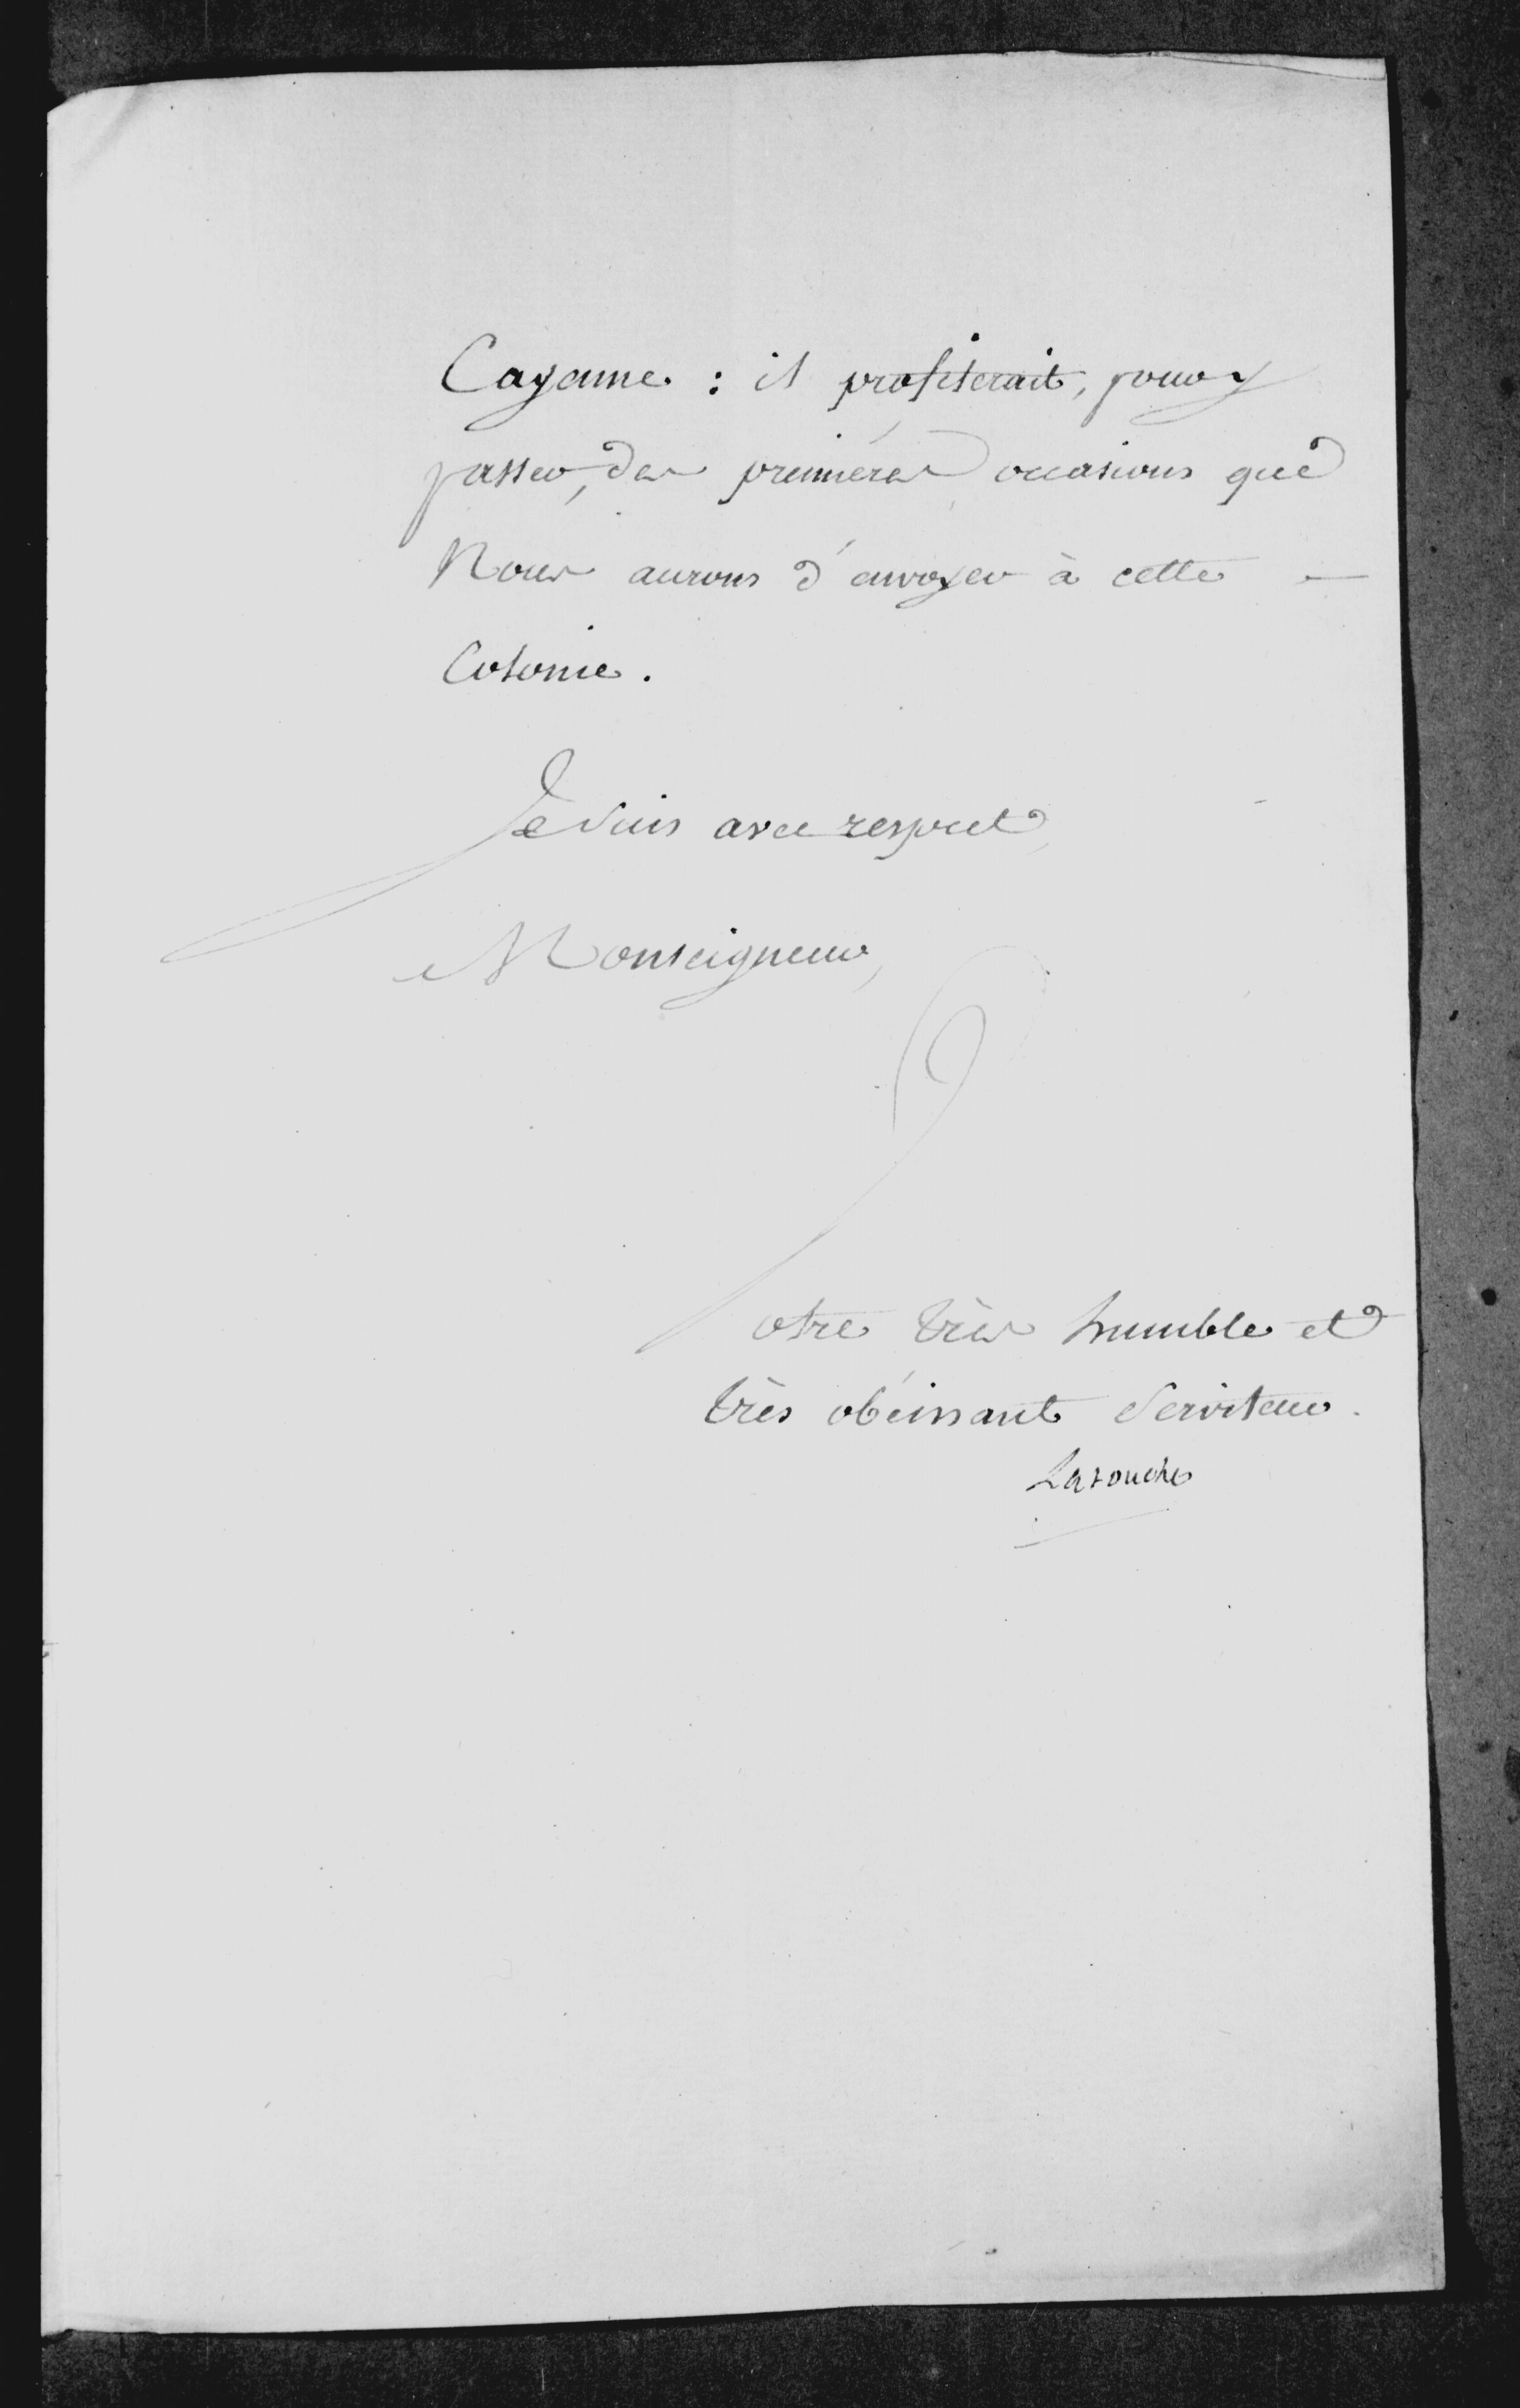 Cayenne : il profiterait, pour y
passer, des premières occasions que
Nous aurons d'envoyer à cette
Colonie.
Je suis avec respect,
Monseigneur,
Votre très humble et
très obéissant Serviteur.
Latouche